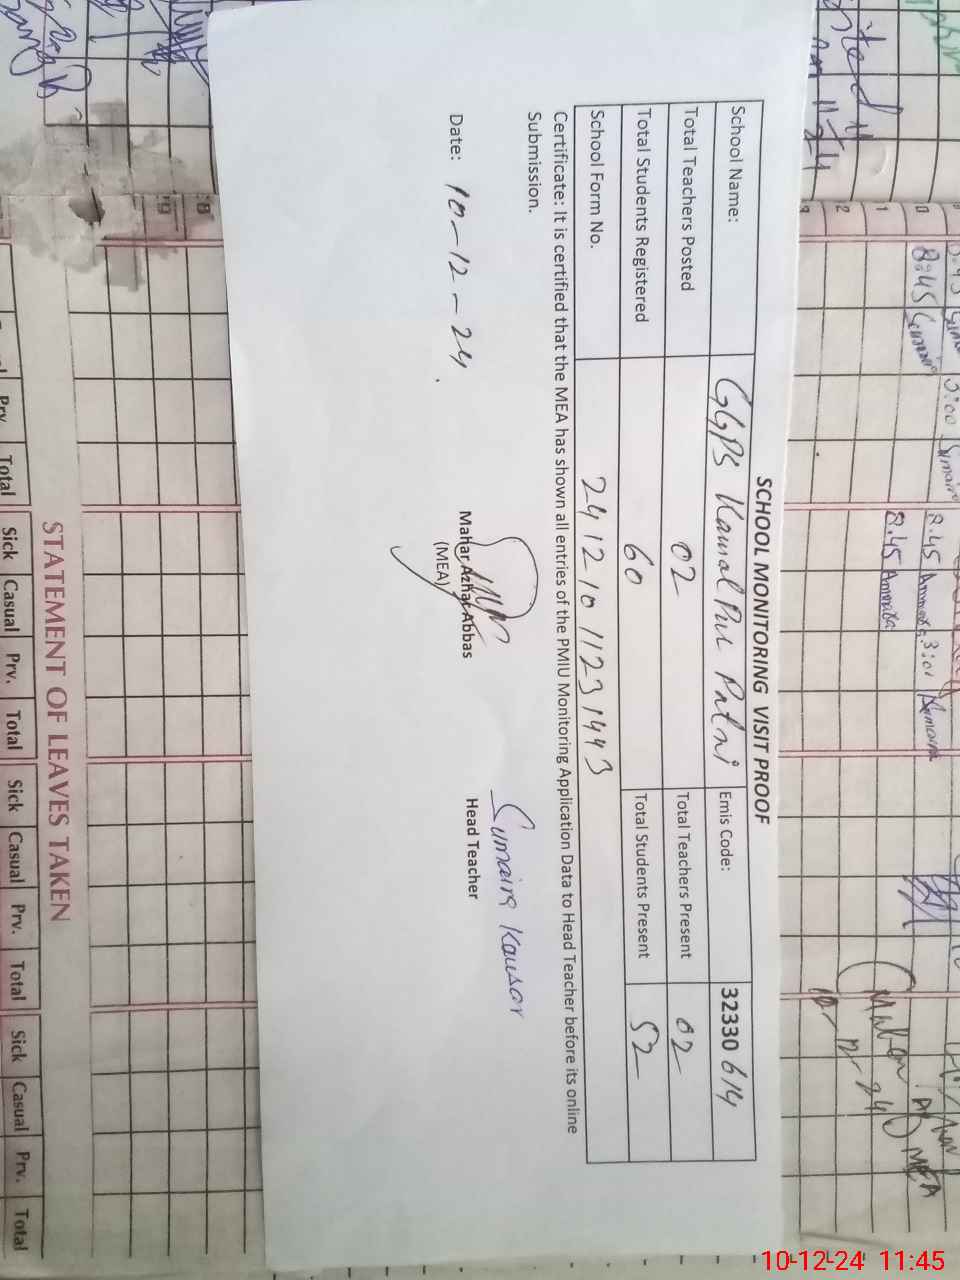 SCHOOL MONITORING VISIT PROOF
School Name: GGPS Kamal Pur Patni Emis Code: 32330 614
Total Teachers Posted 02 Total Teachers Present 02
Total Students Registered 60 Total Students Present 52
School Form No. 241210 1123 1443
Certificate: It is certified that the MEA has shown all entries of the PMIU Monitoring Application Data to Head Teacher before its online
Submission.
Sumaira Kausar
Date: 10-12-24. Mahar Azhar Abbas Head Teacher
(MEA)
8:45
8:45
3:01
8:45
MEA
10-12-24
STATEMENT OF LEAVES TAKEN
Prv. Total Sick Casual Prv. Total Sick Casual Prv. Total Sick Casual Prv. Total
10-12-24 11:45